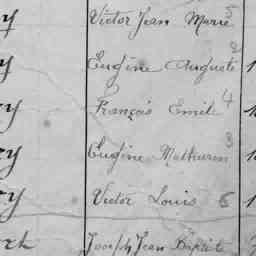 y Victor Jean Marie 5
y Eugène Auguste 2
y François Emile 4
y Eugène Mathurin 3
y Victor Louis 6
rk Joseph Jean Baptiste